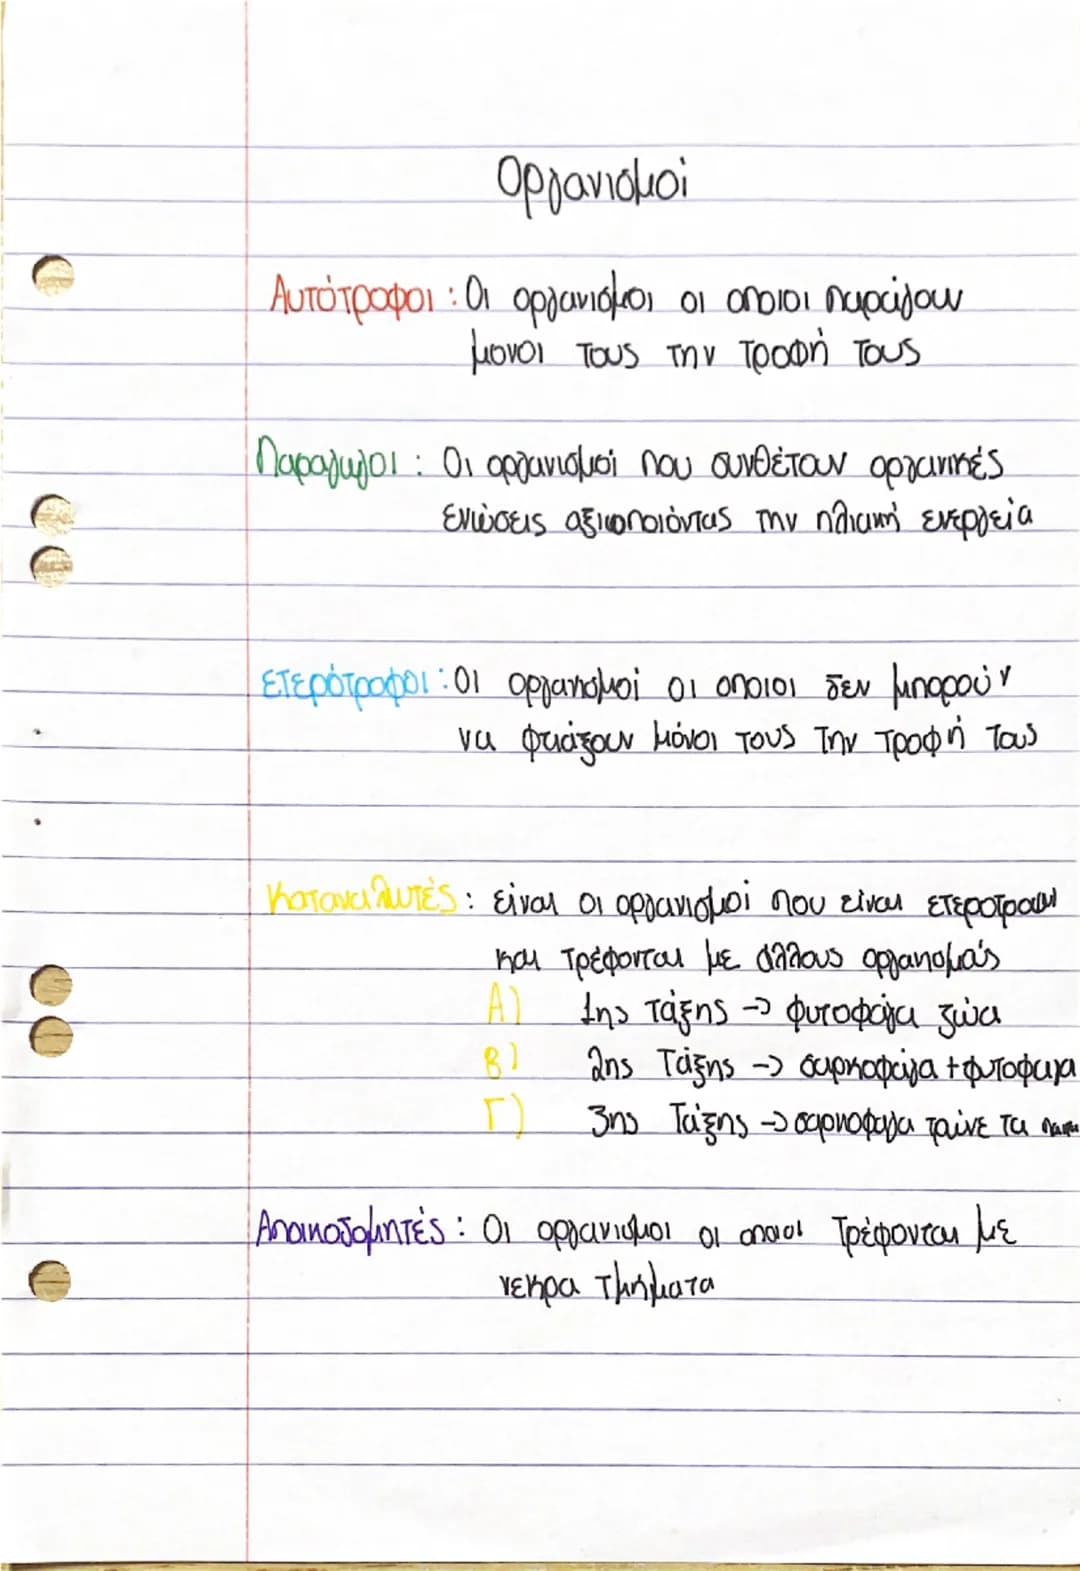 Οργανισμοί
Αυτότροφοι : Οι οργανισμοι οι οποιοι παράγουν
μονοι τους την τροφή τους
Παραγωγοι : Οι οργανισμοί που συνθέτουν οργανικές
ενώσεις αξιοποιόντας την ηλιακή ενεργεία
Ετερότροφοι : Οι οργανισμοί οι οποιοι δεν μπορούν
να φτιάξουν μόνοι τους την τροφή τους
Καταναλωτές : είναι οι οργανισμοί που είναι ετεροτροφοι
και τρέφονται με άλλους οργανισμούς
Α) 1ης τάξης -> φυτοφάγα ζώα
Β) 2ης Τάξης -> σαρκοφάγα + φυτοφαγα
Γ) 3ης Τάξης -> σαρκοφαγα τρώνε τα
Αποικοδομητές : Οι οργανισμοι οι οποιοι τρέφονται με
νεκρα τμήματα